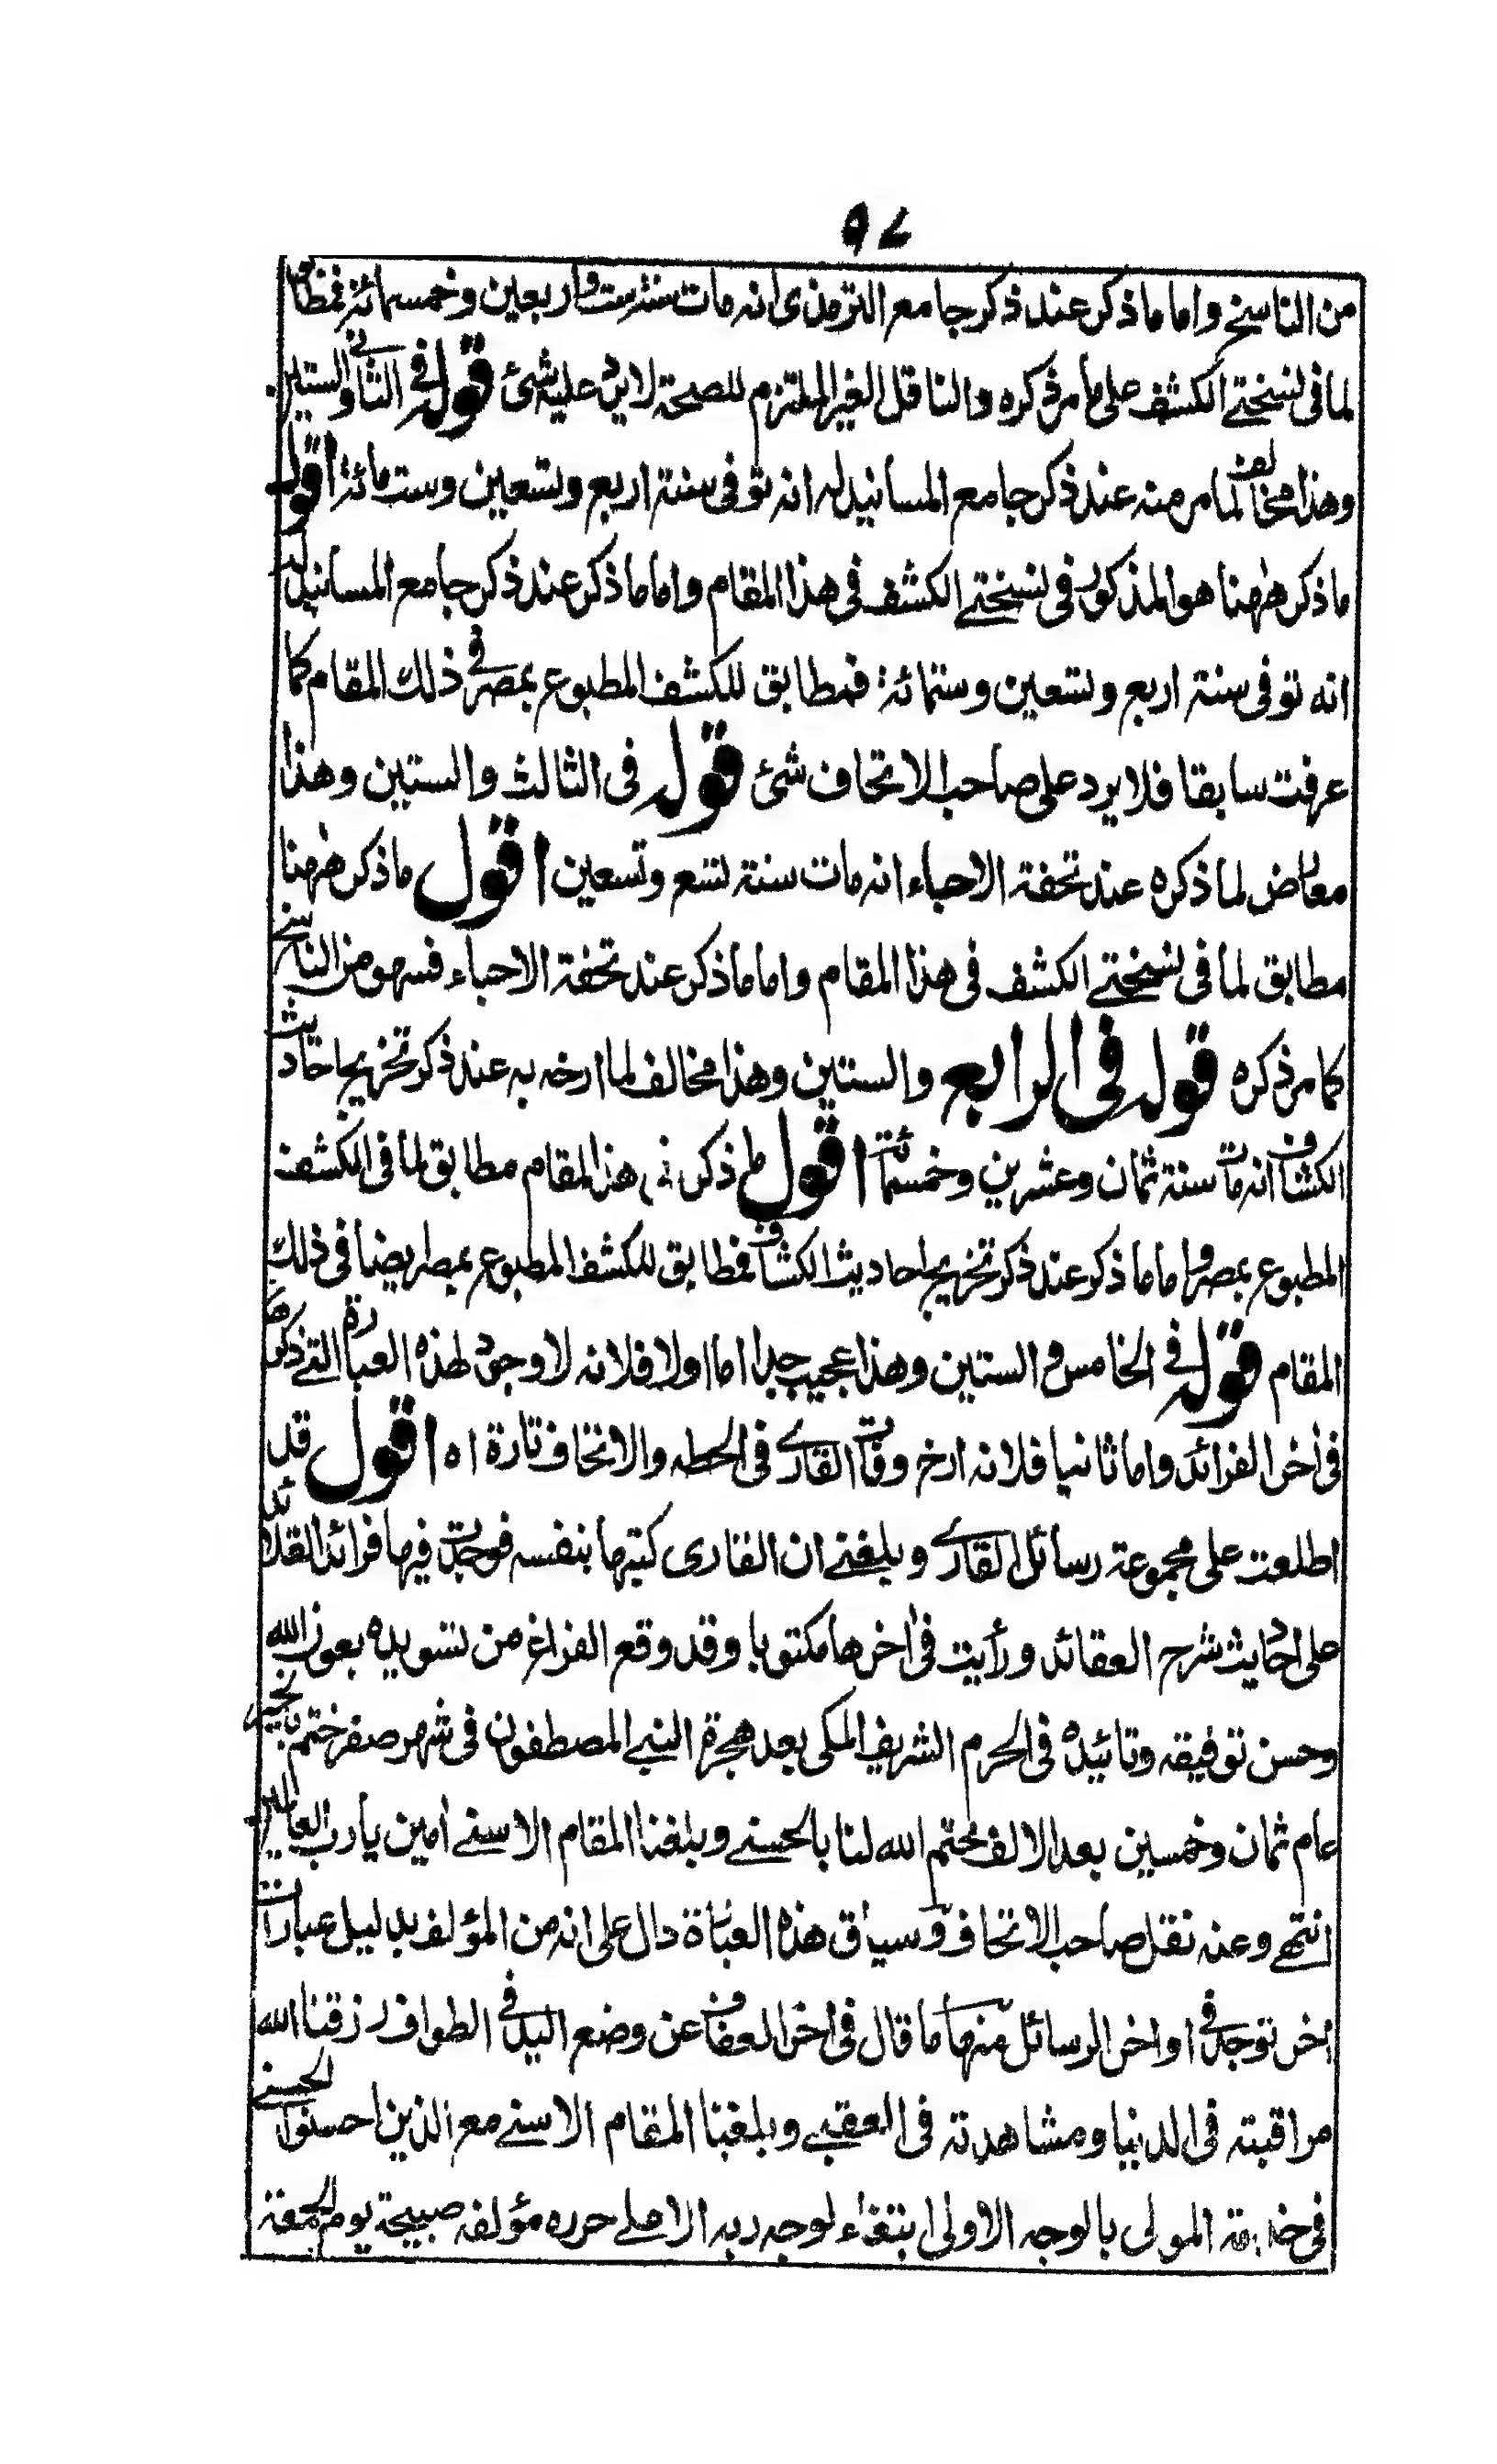 ٩٧
من الناسخ واما ما ذكر عند ذكر جامع الترمذى انه مات سنة ست واربعين وخمسمائة فمطابق
لما فى نسختے الكشف على ما مر ذكره والناقل الغير الملتزم للصحة لا يرد عليه شئ قوله فى الثانى والستين
وهذا مخالف لما مر منه عند ذكر جامع المسانيد له انه توفى سنة اربع وتسعين وست مائة اقول
ما ذكر ههنا هو المذكور فى نسختے الكشف فى هذا المقام واما ما ذكر عند ذكر جامع المسانيد له
انه توفى سنة اربع وتسعين وستمائة فمطابق للكشف المطبوع بمصر فى ذلك المقام كما
عرفت سابقا فلا يرد على صاحب الاتحاف شئ قوله فى الثالث والستين وهذا
معارض لما ذكره عند تحفة الاحباء انه مات سنة تسع وتسعين اقول ما ذكر ههنا
مطابق لما فى نسختے الكشف فى هذا المقام واما ما ذكر عند تحفة الاحباء فسهو من الناسخ
كما مر ذكره قوله فى الرابع والستين وهذا مخالف لما ارخه به عند ذكر تخريج احاديث
الكشاف انه مات سنة ثمان وعشرين وخمسمائة اقول ما ذكر فى هذا المقام مطابق لما فى الكشف
المطبوع بمصر واما ما ذكر عند ذكر تخريج احاديث الكشاف فمطابق للكشف المطبوع بمصر ايضا فى ذلك
المقام قوله فى الخامس والستين وهذا عجيب جدا اما اولا فلانه لا وجود لهذه العبارة التے ذكرها
فى اخر الفرائد واما ثانيا فلانه ارخ وفات القارے فى الحطه والاتحاف تارة اه اقول قد
اطلعت على مجموعة رسائل القارے وبلغنے ان القارى كتبها بنفسه فوجدت فيها فرائد القلائد
على احاديث شرح العقائد ورأيت فى اخرها مكتوبا وقد وقع الفراغ من تسويده بعون الله
وحسن توفيقه وتائيده فى الحرم الشريف المكى بعد هجرة النبے المصطفوى فى شهر صفر ختم بالخير
عام ثمان وخمسين بعد الالف ختم الله لنا بالحسنے وبلغنا المقام الاسنے امين يا رب العالمين
انتهے وعنه نقل صاحب الاتحاف وسياق هذه العبارة دال على انه من المؤلف بدليل عبارات
اخر توجد فى اواخر الرسائل منها ما قال فى اخر العفاف عن وضع اليد فى الطواف رزقنا الله
مراقبته فى الدنيا ومشاهدته فى العقبے وبلغنا المقام الاسنے مع الذين احسنوا الحسنے
فى خدمة المولى بالوجه الاولى ابتغاء لوجه ربه الاعلے حرره مؤلفه صبيحة يوم الجمعة